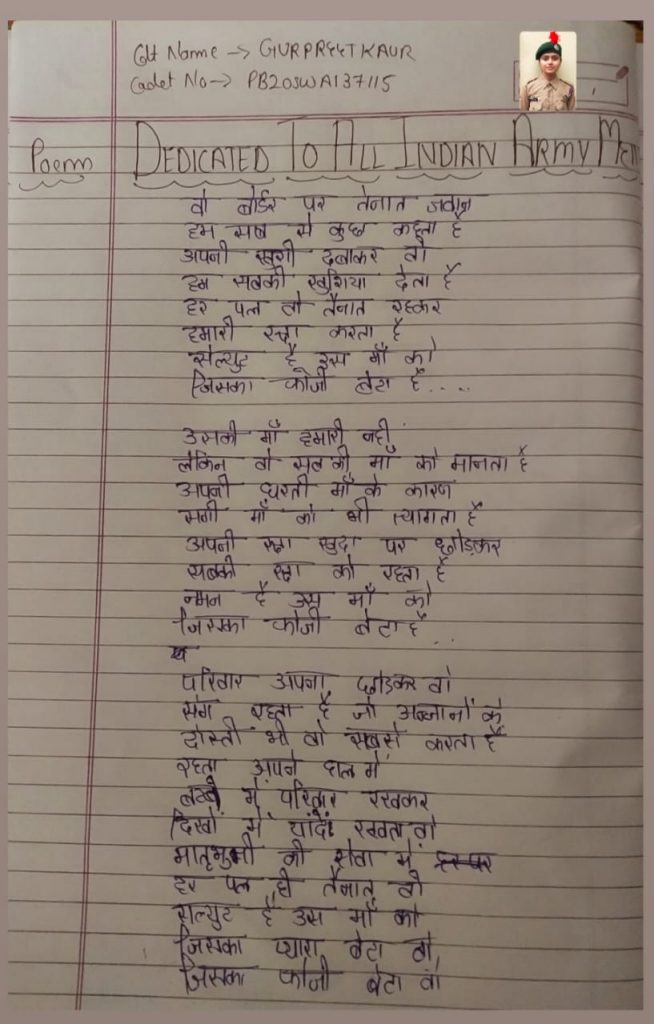 Cdt Name → GURPREET KAUR
Cadet No → PB20SWA137115
Poem DEDICATED TO ALL INDIAN ARMY Men
वो बोर्डर पर तेनात जवान
हम सब से कुछ कहता है
अपनी खुशी दबाकर वो
हम सबको खुशिया देता है
हर पल वो तैनात रहकर
हमारी रक्षा करता है
सेल्युट है उस माँ को
जिसका फोजी बेटा है....
उसकी माँ हमारी नही
लेकिन वो सब की माँ को मानता है
अपनी धरती माँ के कारण
सगी माँ को भी त्यागता है
अपनी रक्षा खुदा पर छोड़कर
सबकी रक्षा को रहता है
नमन है उस माँ को
जिसका फोजी बेटा है...
परिवार अपना छोडकर वो
संग रहता है जो अन्जानों के
दोस्ती भी वो सबसे करता है
रहता अपने हाल में
में परिवार रखकर
में यादें रखता वो
मातृभुमी की सेवा में
हर पल ही तैनात वो
सल्युट है उस माँ को
जिसका प्यारा बेटा वो
जिसका फोजी बेटा वो